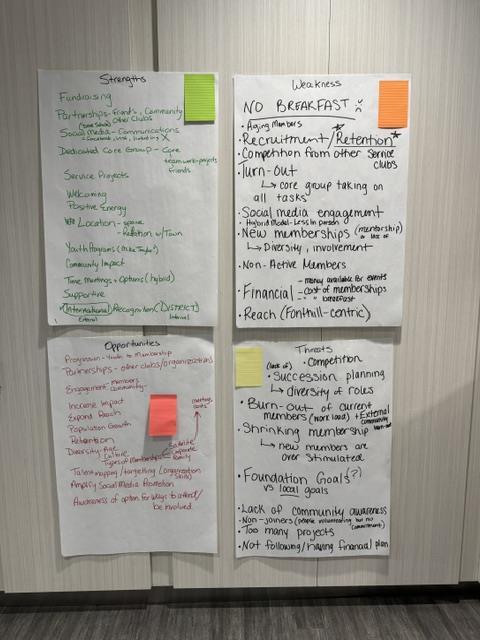 Strengths
Fundraising
Partnerships - Friends, Community
Other Clubs
Social Media - Communications
Dedicated Core Group - Core
teamwork - projects
friends
Service Projects
Welcoming
Positive Energy
Location - space
- Relation w/Town
Youth Programs
Community Impact
Time Meetings + Options (hybrid)
Supportive
International Recognition (DISTRICT)
External Internal
Weakness
NO BREAKFAST
• Aging Members
• Recruitment/Retention
• Competition from other Service
clubs
Turn-out
↳ core group taking on
all tasks
• Social media engagement
• Hybrid Model - Less in person
• New memberships (mentorship)
or lack of
↳ Diversity, involvement
• Non-Active Members
- money available for events
• Financial - cost of memberships
- " " breakfast
• Reach (Fonthill-centric)
Opportunities
Progression - Youth to Membership
Partnerships - other clubs/organizations
Engagement - members
community
Increase Impact
Expand Reach
Population Growth
Retention
meeting
costs
Diversity - Age
Culture
Types of Memberships - Satellite
Corporate
Family
Talent mapping/targeting (organization
skills)
Amplify Social Media Promotion
Awareness of option for ways to attend/
be involved
Threats
• Competition
(lack of)
• Succession planning
↳ diversity of roles
• Burn-out of current
members (work load) + External
community
burn-out
• Shrinking membership
↳ new members are
over stimulated
• Foundation Goals(?)
vs local goals
• Lack of community awareness
• Non-joiners (people volunteering but no
commitment)
• Too many projects
• Not following/having financial plan